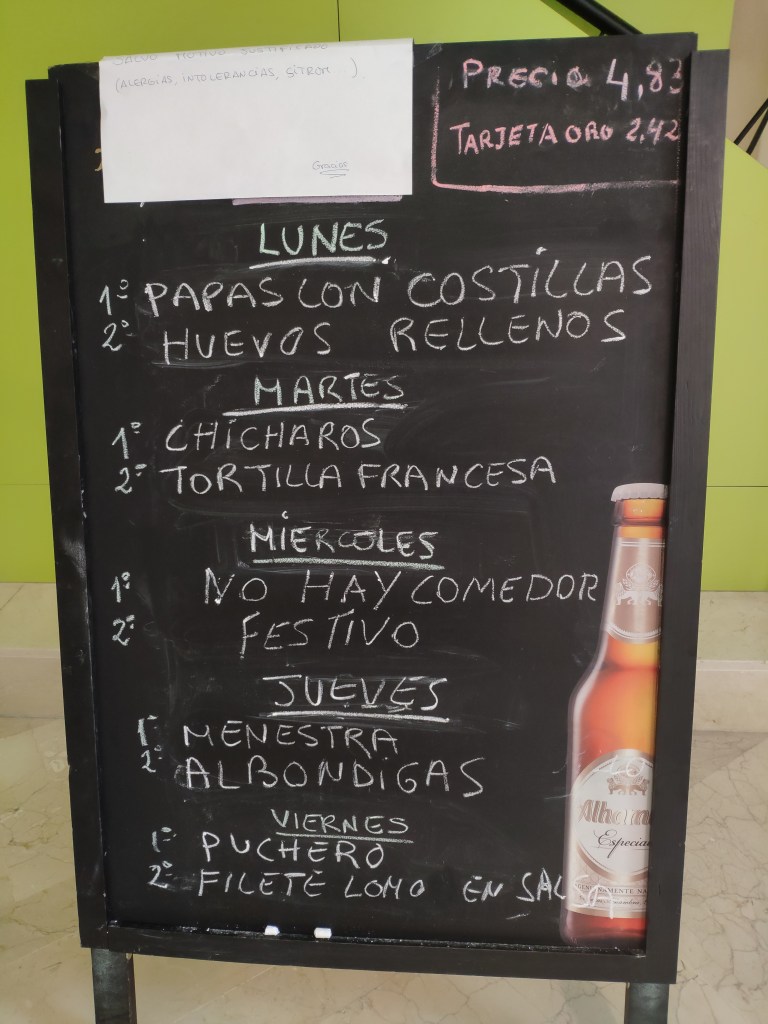 SALUD MOTIVO JUSTIFICADO
(ALERGIAS, INTOLERANCIAS, SÍTROM ).
Gracias
PRECIO 4,83
TARJETA ORO 2,42
LUNES
1º PAPAS CON COSTILLAS
2º HUEVOS RELLENOS
MARTES
1º CHICHAROS
2º TORTILLA FRANCESA
MIERCOLES
1º NO HAY COMEDOR
2º FESTIVO
JUEVES
1º MENESTRA
2º ALBONDIGAS
VIERNES
1º PUCHERO
2º FILETE LOMO EN SALSA
Especial